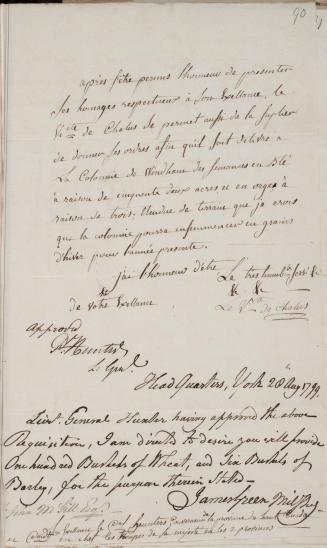 90
après s'être permis l'honneur de presenter
ses homages respectueux à son Exellance, le
Vte de Chalus se permet aussi de la suplier
de donner ses ordres afin quil soit délivré à
La Colonie de Windham des semances en Blé
à raison de cinquante deux acres et en orge à
raison de trois; étendue de terraine que je crois
que la colonie pourra ensemencer en grains
d'hiver pour l'année presente.
j'ai l'honneur d'être Le très humble
de votre Exellance Le Vte de Chalus
Approved
P. Hunter
Lt Genl.
Head Quarters, York 28th Aug 1799.
Lieut. General Hunter having approved the above
Requisition, I am directed to desire you will provide
One hundred Bushels of Wheat, and Six Bushels of
Barley, for the purpose therein Stated
James Green Mil. Sy.
John McGill Esqr.
a son Exellance le Genl hunter de la province du haut Canada
en chef les troupes de sa majesté en les 2 provinces